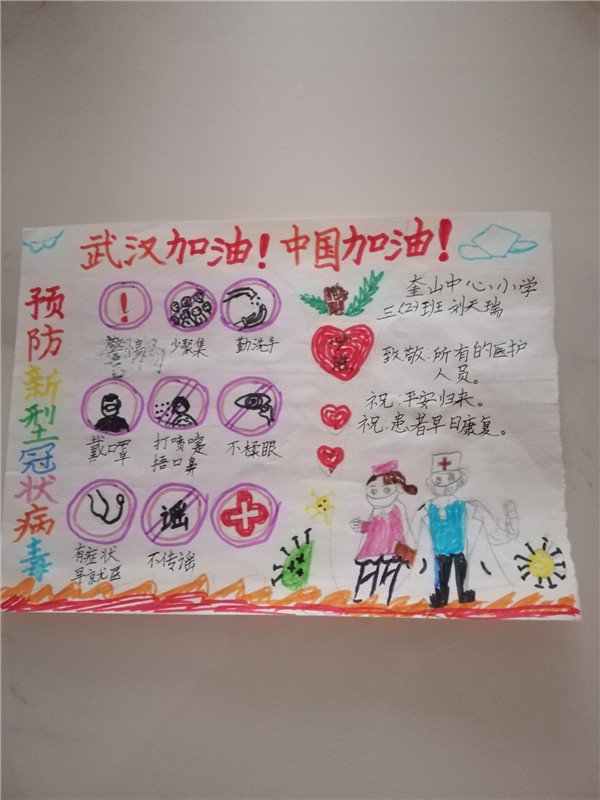 武汉加油！中国加油！
预防新型冠状病毒
少聚集
勤洗手
戴口罩
打喷嚏
捂口鼻
不揉眼
有症状
早就医
谣
不传谣
奎山中心小学
三（2）班 刘天瑞
致敬：所有的医护
人员。
祝：平安归来。
祝：患者早日康复。